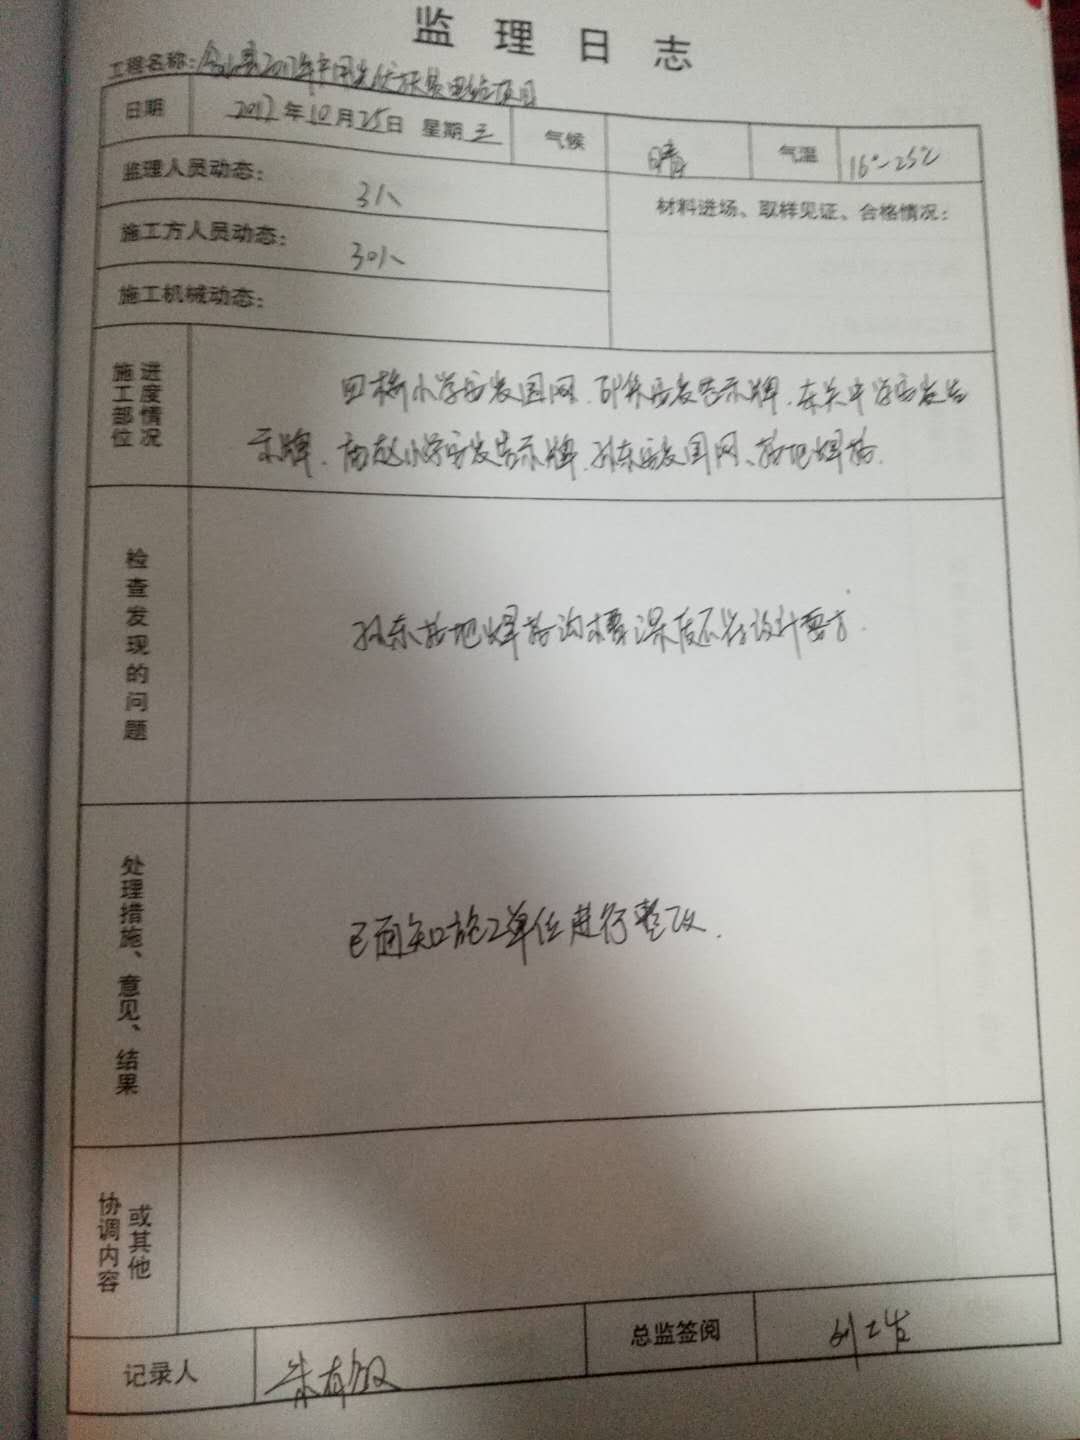 监理日志
工程名称：含山县2017年户用光伏扶贫电站项目
日期 2017年10月25日 星期三 气候 晴 气温 16°-25℃
监理人员动态： 3人
材料进场、取样见证、合格情况：
施工方人员动态： 30人
施工机械动态：
施工部位进度情况
小学安装围网、安装告示牌、东关中学安装告
示牌、小学安装告示牌、孙东安装围网、接地焊接.
检查发现的问题
孙东接地焊接沟槽深度不符设计要求.
处理措施、意见、结果
已通知施工单位进行整改.
协调内容或其他
记录人 朱有
总监签阅